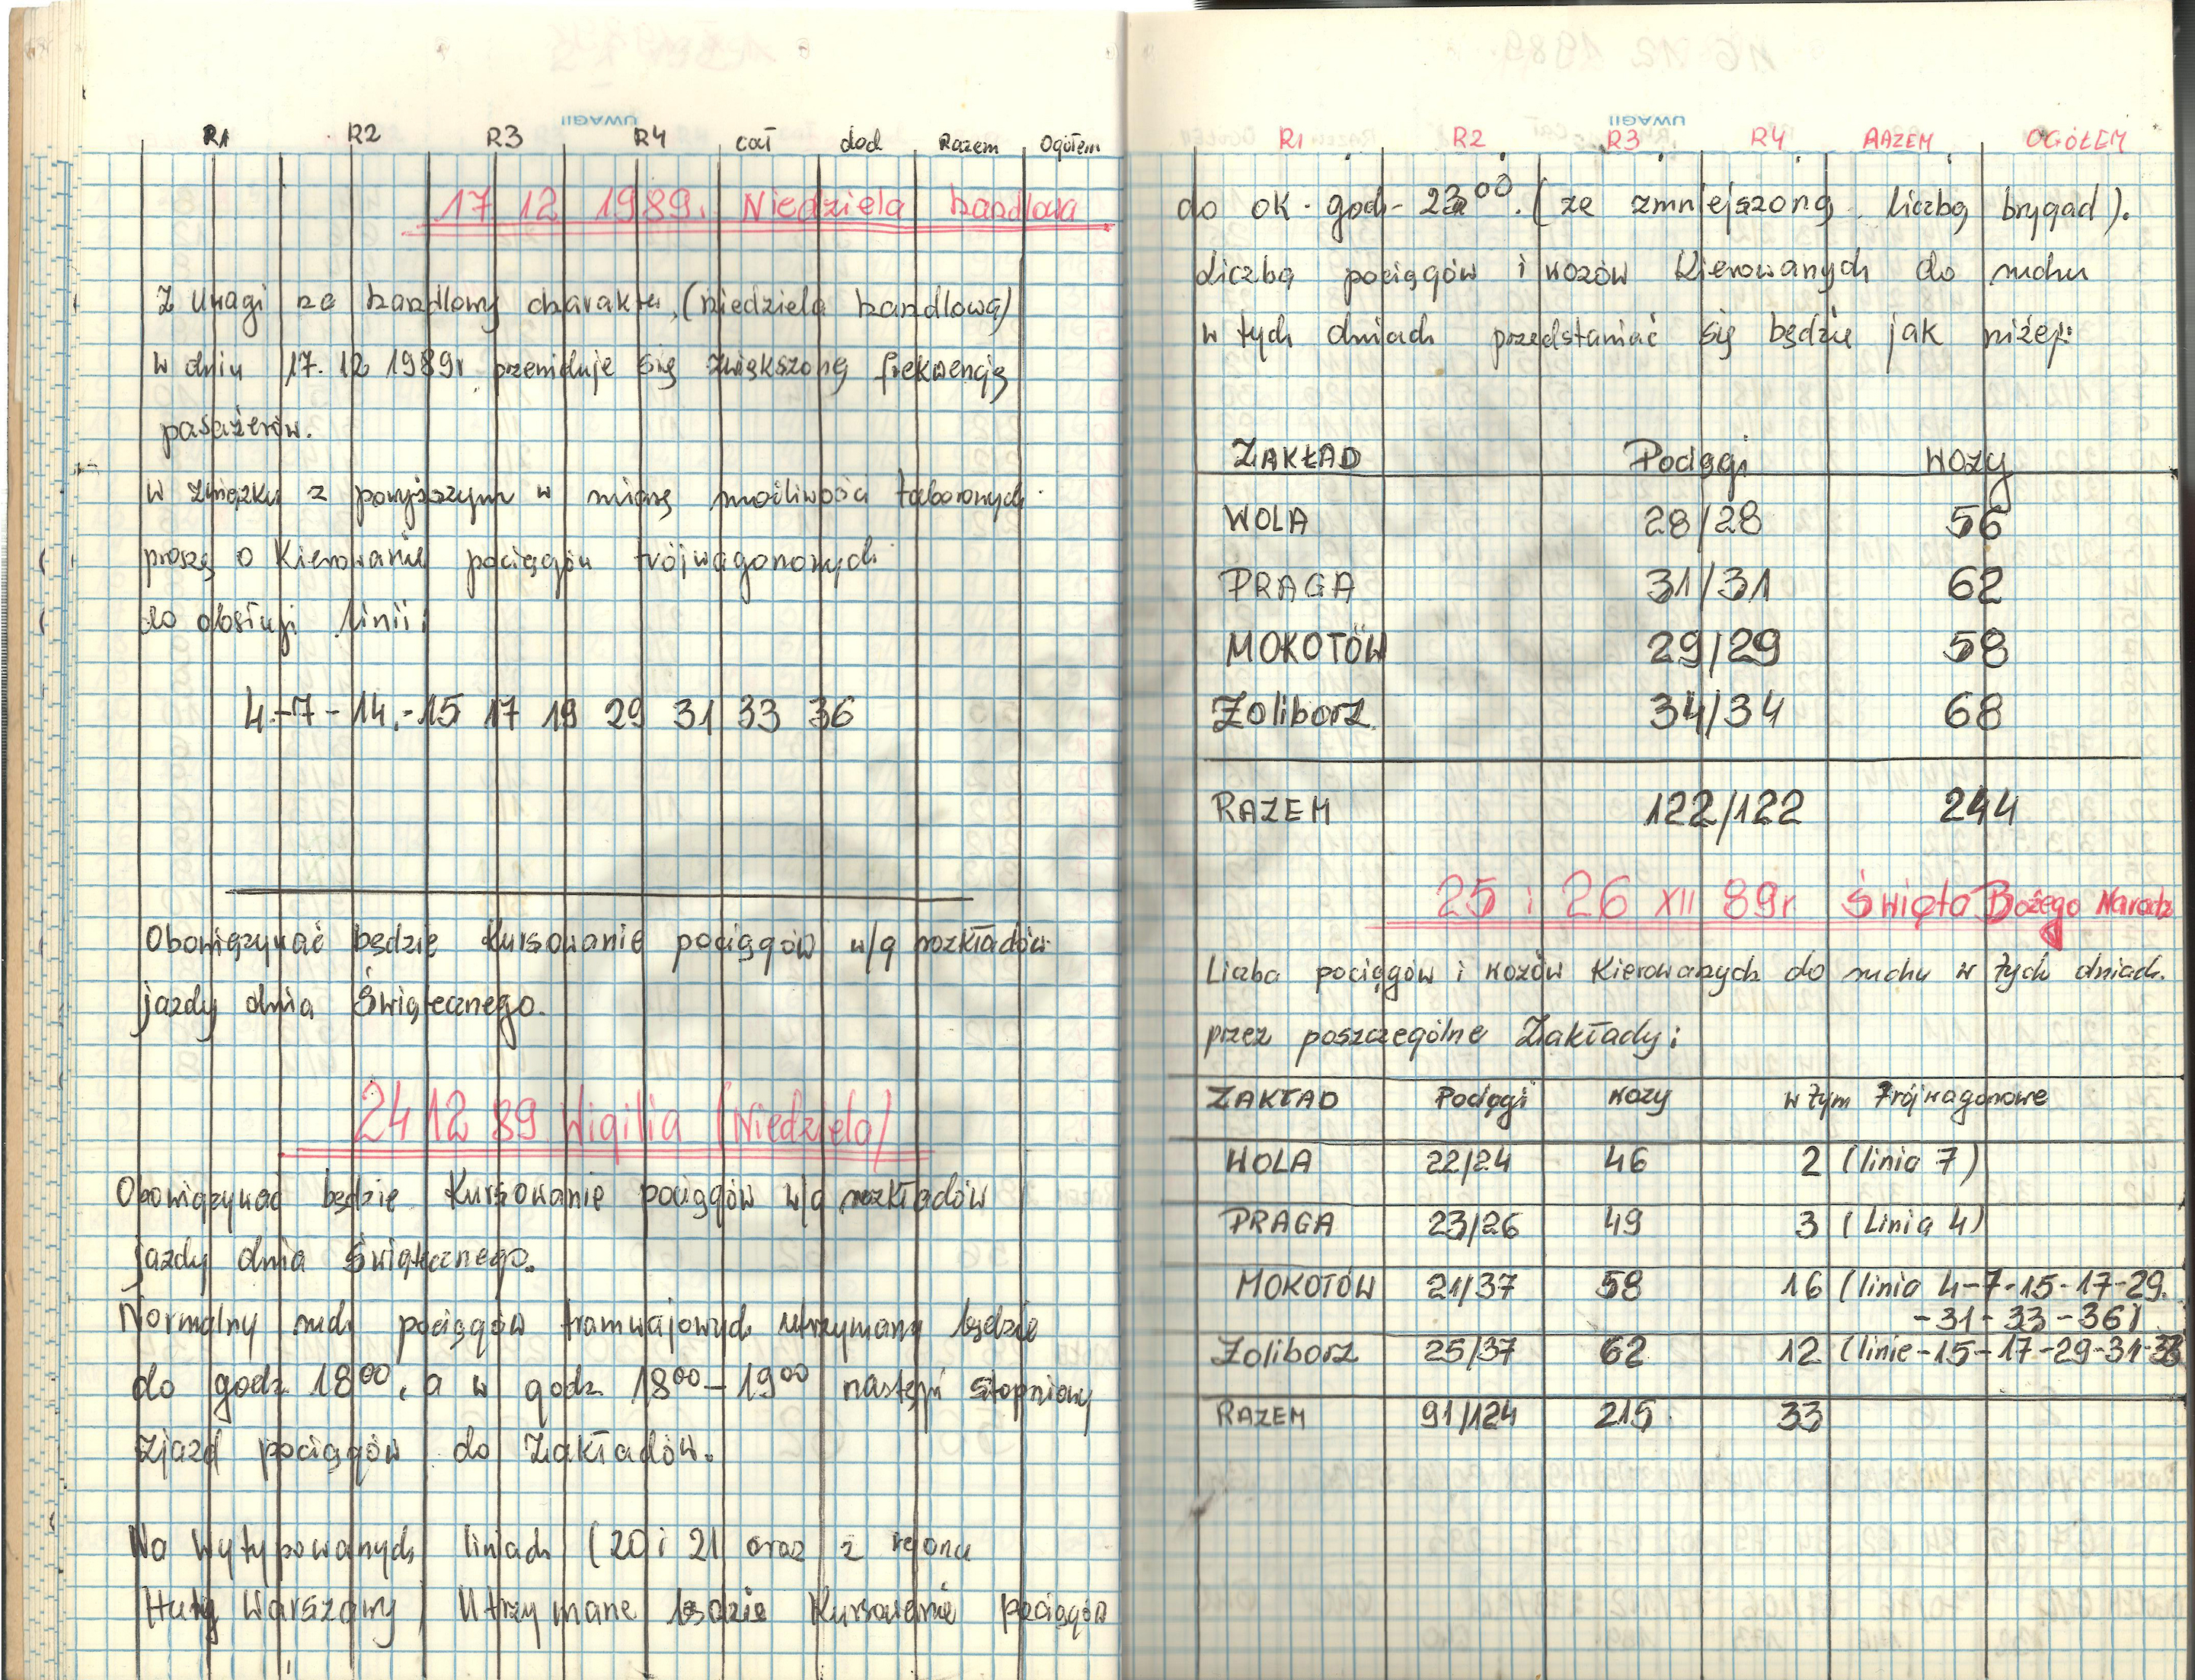 R1 R2 R3 R4 cał dod Razem Ogółem
UWAGI
17 12 1989. Niedziela handlowa
Z uwagi na handlowy charakter (niedziela handlowa)
w dniu 17. 12 1989r przewiduje się zwiększoną frekwencję
pasażerów.
w związku z powyższym w miarę możliwości taborowych
proszę o kierowanie pociągów trójwagonowych
do obsługi linii:
4-7-14-15 17 19 29 31 33 36
Obowiązywać będzie kursowanie pociągów w/g rozkładów
jazdy dnia świątecznego.
24 12 89 Wigilia (Niedziela)
Obowiązywać będzie kursowanie pociągów w/g rozkładów
jazdy dnia świątecznego.
Normalny ruch pociągów tramwajowych utrzymany będzie
do godz. 18⁰⁰, a w godz. 18⁰⁰-19⁰⁰ nastąpi stopniowy
zjazd pociągów do Zakładów.
Na wytypowanych liniach (20 i 21 oraz z rejonu
Huty Warszawy) utrzymane będzie kursowanie pociągów
UWAGI
R1 R2 R3 R4 RAZEM OGÓŁEM
do ok. god- 23⁰⁰. (ze zmniejszoną liczbą brygad).
Liczba pociągów i wozów kierowanych do ruchu
w tych dniach przedstawiać się będzie jak niżej:
ZAKŁAD Pociągi WOZY
WOLA 28/28 56
PRAGA 31/31 62
MOKOTÓW 29/29 58
Żoliborz 34/34 68
RAZEM 122/122 244
25 i 26 XII 89r Święta Bożego Narodz
Liczba pociągów i wozów kierowanych do ruchu w tych dniach.
przez poszczególne Zakłady:
ZAKŁAD Pociągi wozy w tym Trójwagonowe
WOLA 22/24 46 2 (linia 7)
PRAGA 23/26 49 3 (Linia 4)
MOKOTÓW 21/37 58 16 (linia 4-7-15-17-29.
-31-33-36)
Żoliborz 25/37 62 12 (linie-15-17-29-31-33
RAZEM 91/124 215 33